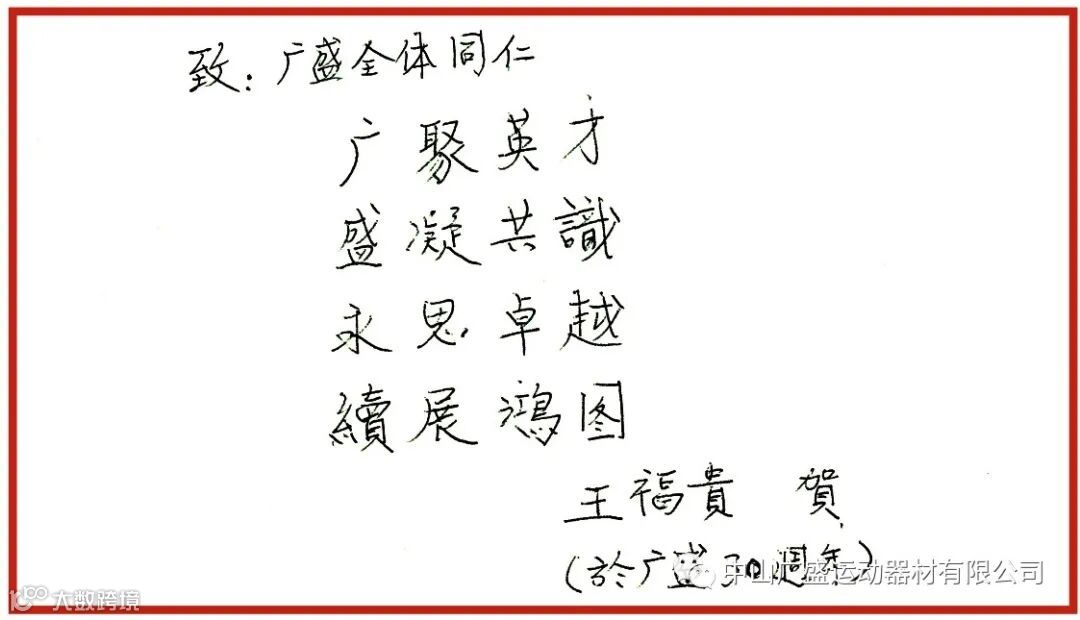 致：广盛全体同仁
广聚英才
盛凝共識
永思卓越
續展鴻图
王福貴 賀
(於广盛30週年)
中山广盛运动器材有限公司
大数跨境